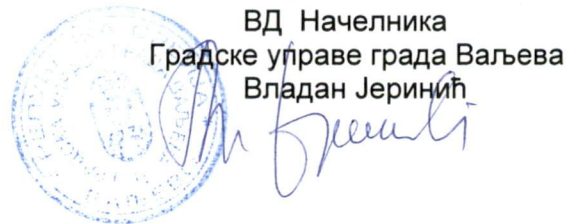 ВД Начелника
Градске управе града Ваљева
Владан Јеринић